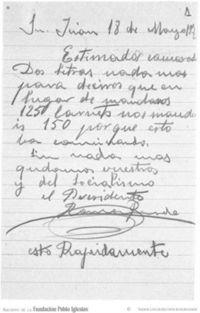 Sn. Juan 18 de Mayo
Estimados camaradas
Dos letras nada mas
para deciros que en
lugar de mandaros
1250 carnes nos mande
is 150 porque esto
ba caminando.
Sin nada mas
quedamos vuestros
y del socialismo
el Presidente
esto Rapidamente
Fundación Pablo Iglesias